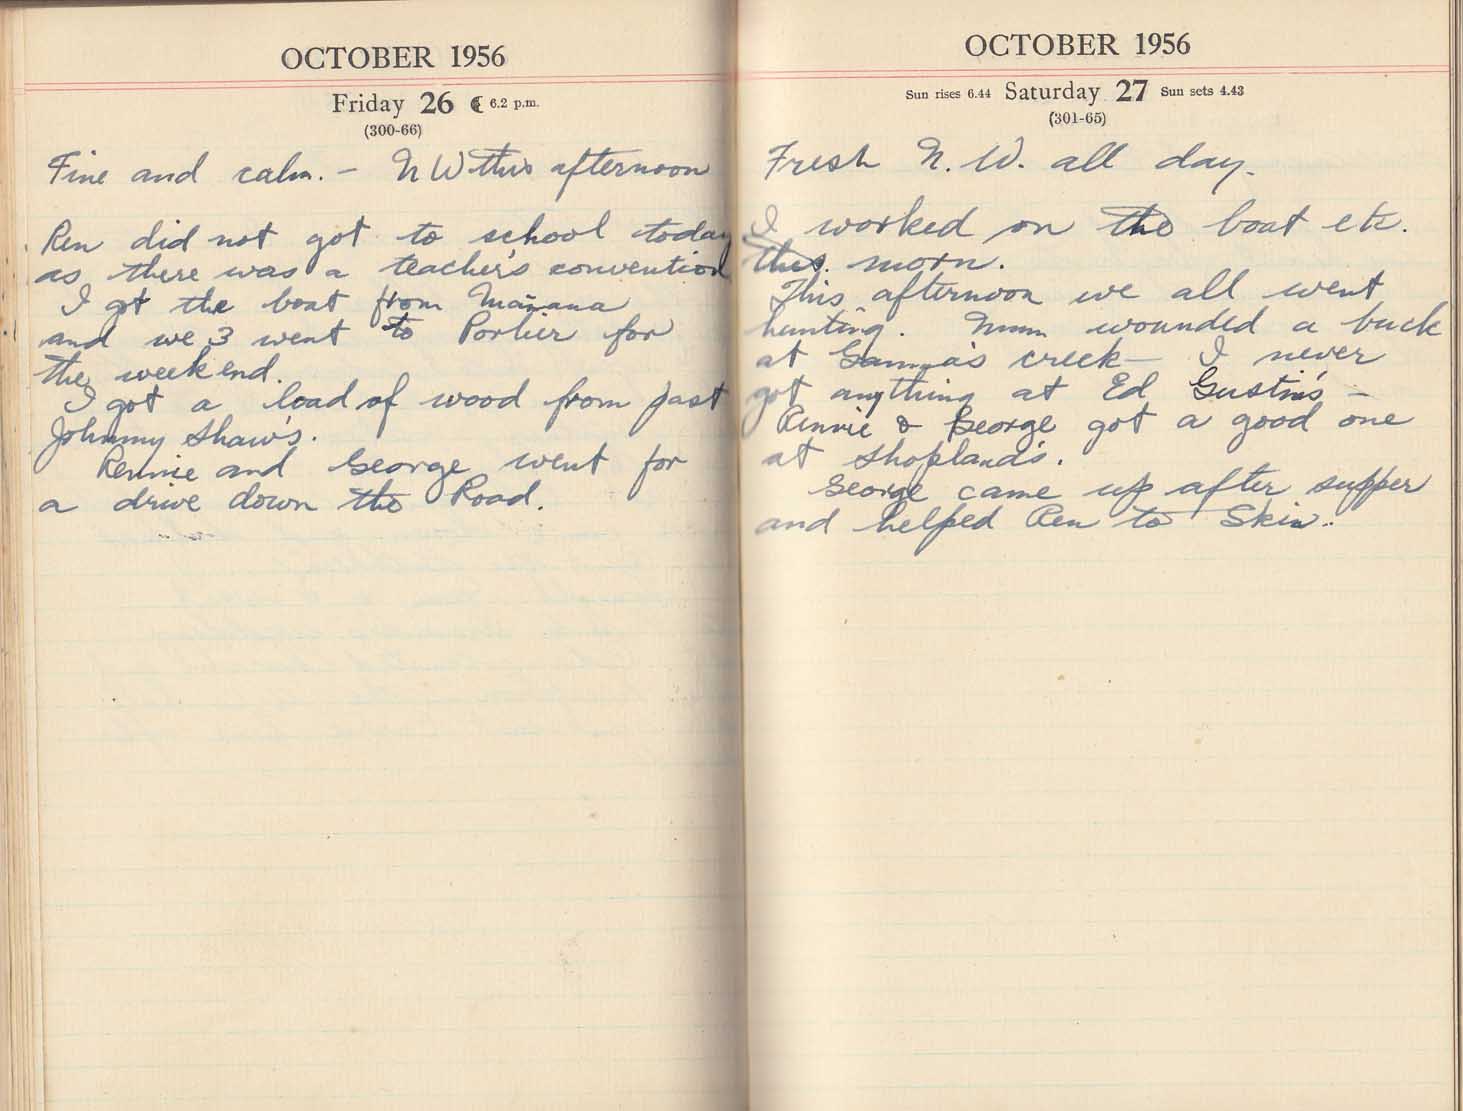 OCTOBER 1956
Friday 26 ☾ 6.2 p.m.
(300-66)
Fine and calm. - N W this afternoon
Ren did not got to school today
as there was a teacher's convention
I got the boat from Mañana
and we 3 went to Porlier for
the weekend.
I got a load of wood from past
Johnny Shaw's.
Rennie and George went for
a drive down the Road.
OCTOBER 1956
Sun rises 6.44 Saturday 27 Sun sets 4.43
(301-65)
Fresh N. W. all day.
I worked on the boat etc.
this morn.
This afternoon we all went
hunting. Mum wounded a buck
at creek - I never
got anything at Ed Gustin's -
Rennie & George got a good one
at Shopland's.
George came up after supper
and helped Ren to Skin.